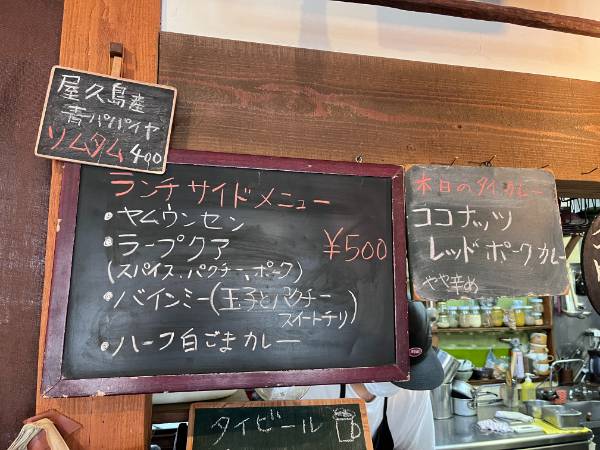 屋久島産
青パパイヤ
ソムタム 400
ランチ サイドメニュー
・ヤムウンセン
・ラープクア ¥500
(スパイス、パクチー、ポーク)
・バインミー(玉子とパクチー
スイートチリ)
・ハーフ白ごまカレー
本日のタイカレー
ココナッツ
レッドポークカレー
やや辛め
タイビール